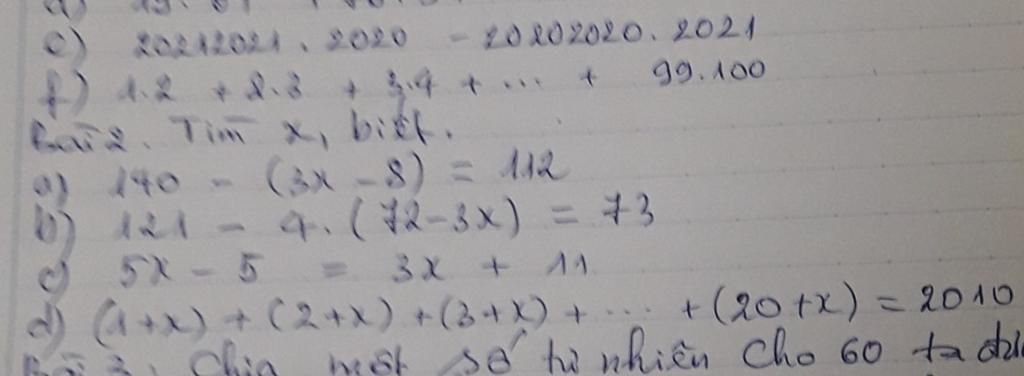 e) 20212021.2020 - 20202020.2021
f) 1.2 + 2.3 + 3.4 + ... + 99.100
Bài 2. Tìm x, biết.
a) 140 - (3x - 8) = 112
b) 121 - 4.(72-3x) = 73
c) 5x - 5 = 3x + 11
d) (1+x) + (2+x) + (3+x) + ... + (20+x) = 2010
Bài 3. Chia một số tự nhiên cho 60 ta